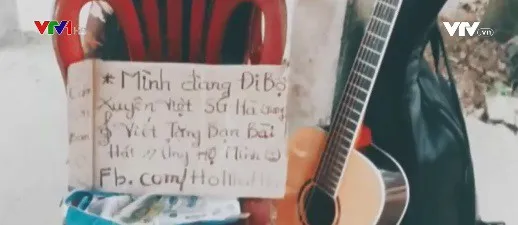 VTV1 HD
VTV.vn
* Mình đang Đi Bộ
Xuyên Việt SG Hà Giang
Viết Tặng Bạn Bài
Hát // Ủng Hộ Mình
Cảm
ơn
Bạn